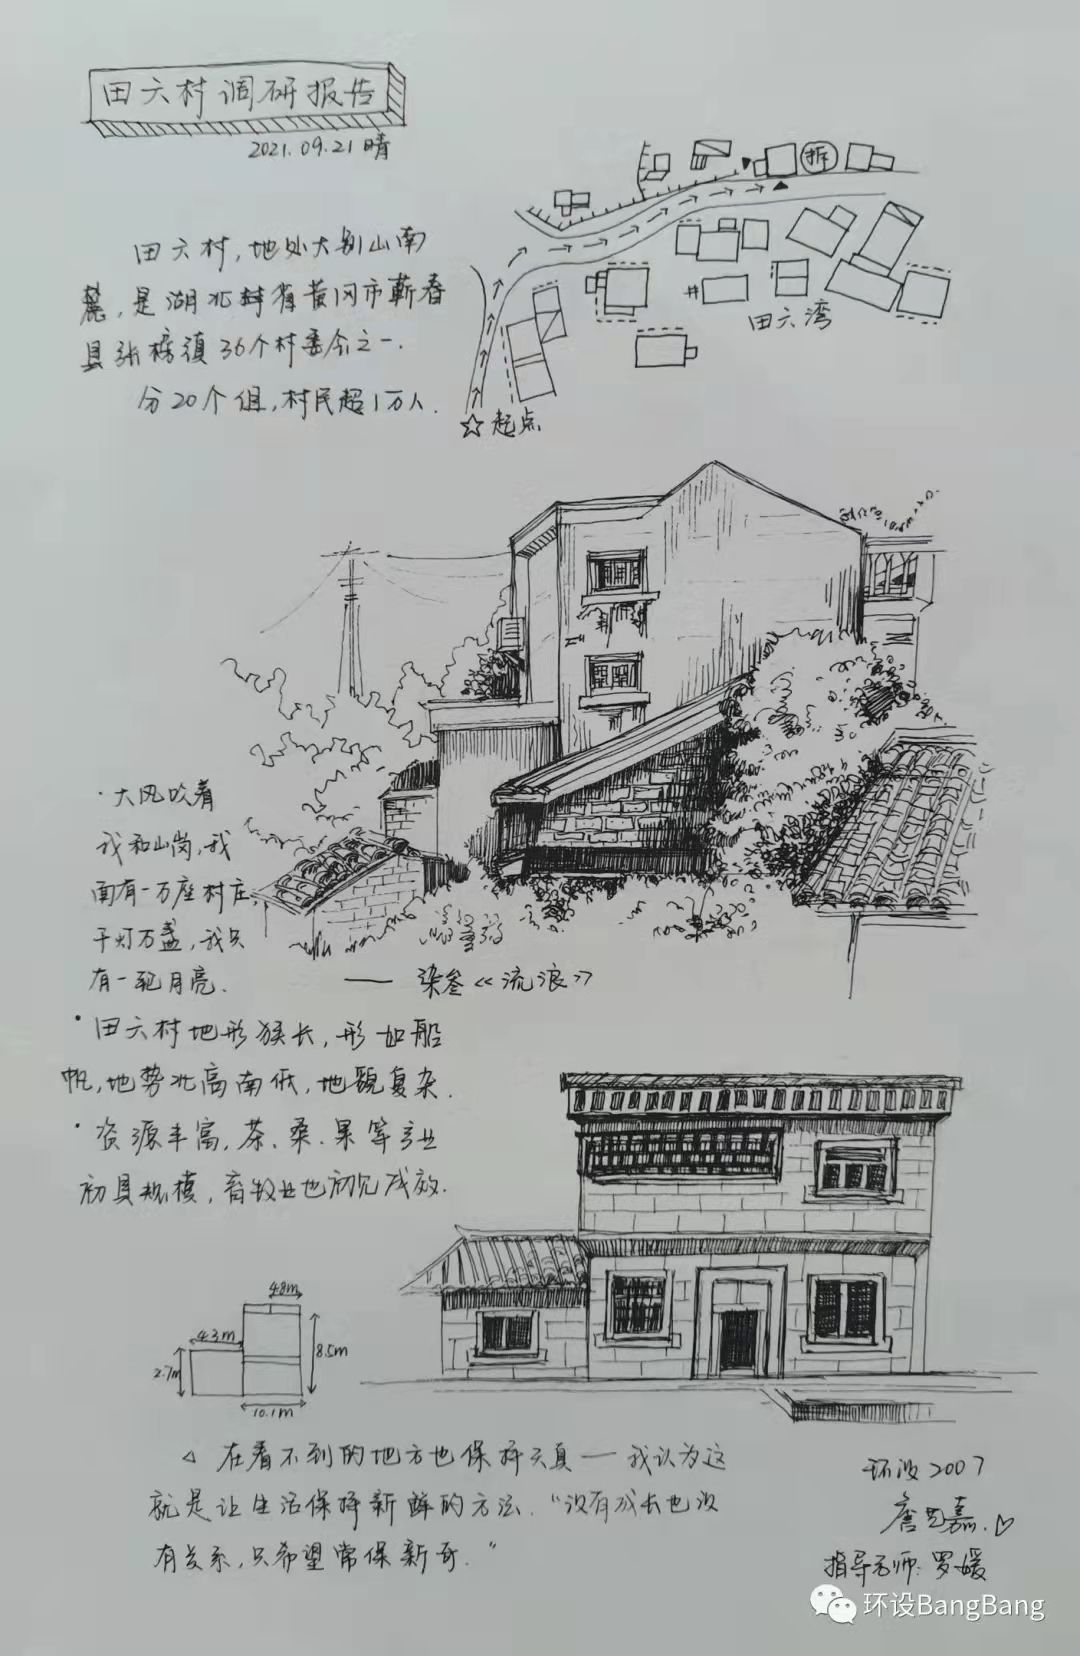 田六村调研报告
2021.09.21 晴
田六村，地处大别山南
麓，是湖北省黄冈市蕲春
县张榜镇36个村委会之一.
分20个组，村民超1万人.
拆
田六湾
起点
·大风吹着
我和山岗，我
面有一万座村庄.
千灯万盏，我只
有一轮月亮.
—— 染叁《流浪》
·田六村地形狭长，形如船
帆，地势北高南低，地貌复杂.
·资源丰富，茶、桑、果等产业
初具规模，畜牧业也初见成效.
4.8m
4.3m
8.5m
2.7m
10.1m
在看不到的地方也保持天真——我认为这
就是让生活保持新鲜的方法. "没有成长也没
有关系，只希望常保新奇."
环设2007
唐嘉.
指导老师: 罗媛
环设BangBang